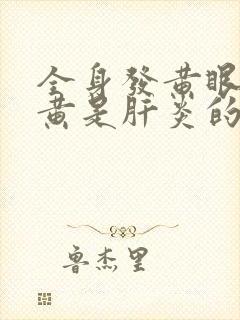 全身發黃眼
黃是肝炎的
魯杰里